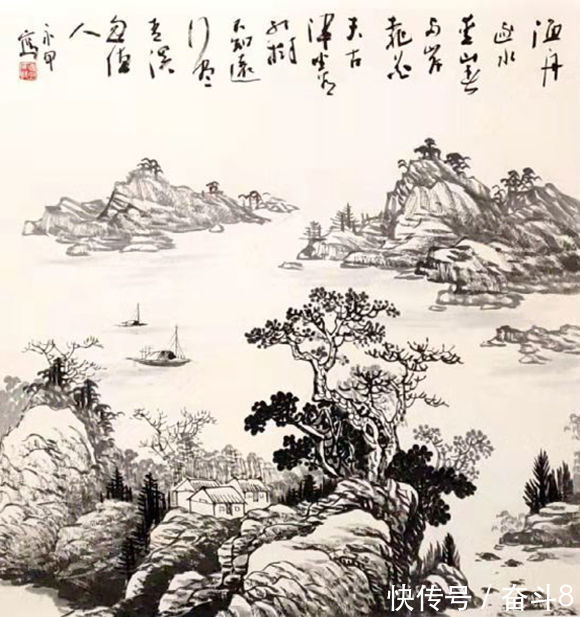 渔舟
逐水
爱山春
两岸
桃花
夹古
津坐看
红树
不知遠
行尽
青溪
忽值
人
永甲寫
快传号 / 奋斗8